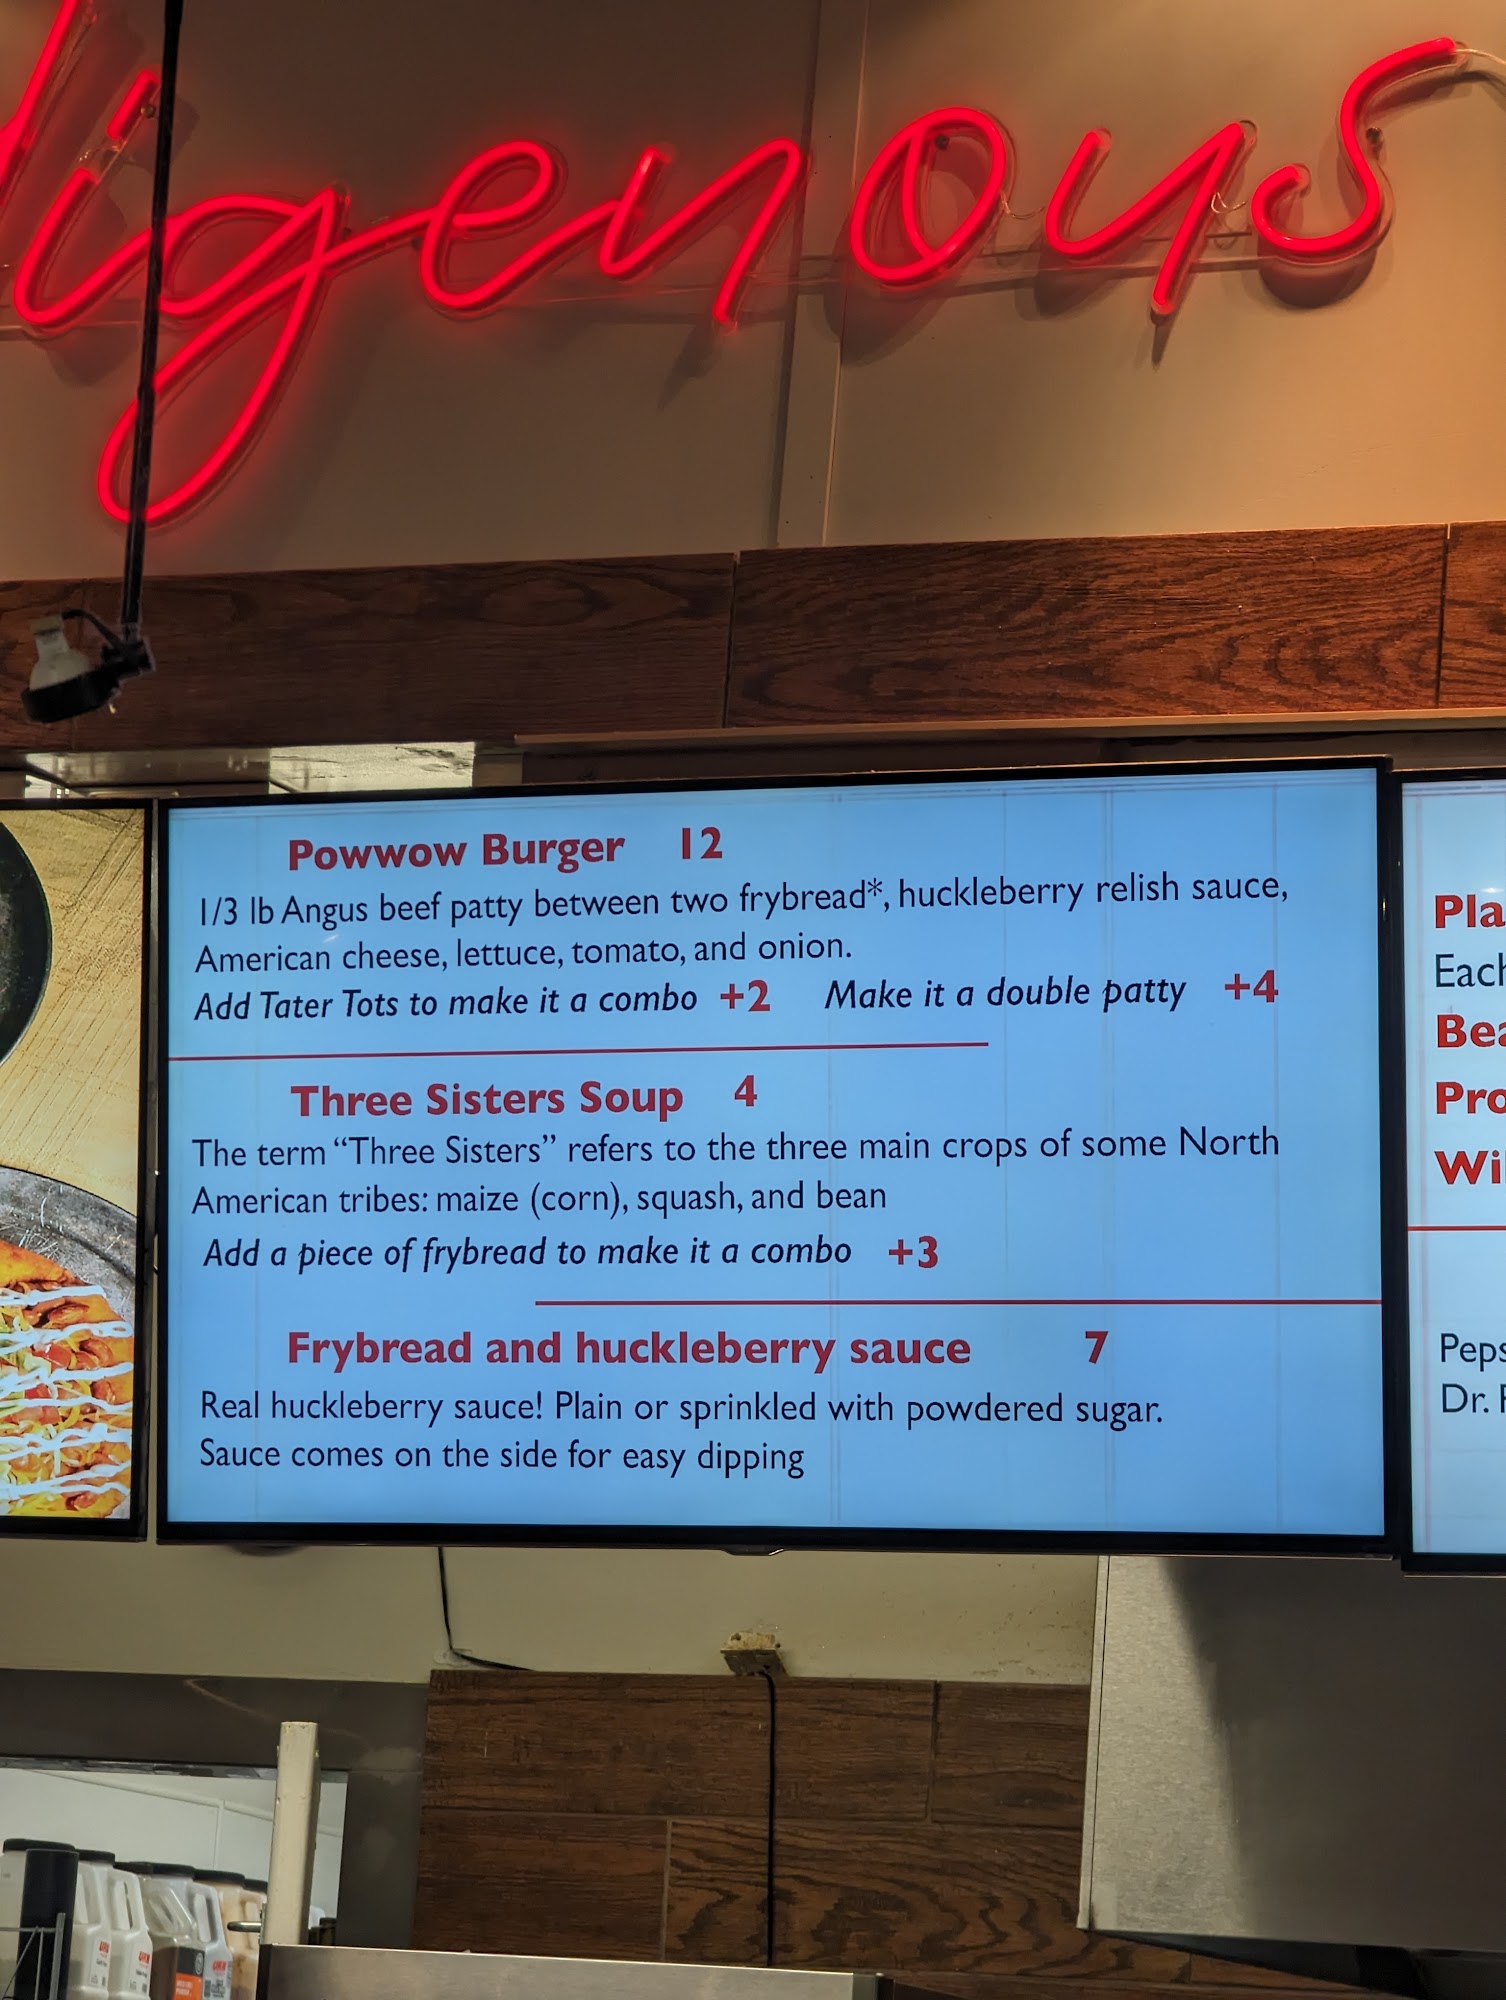 digenous
Powwow Burger 12
1/3 lb Angus beef patty between two frybread*, huckleberry relish sauce,
American cheese, lettuce, tomato, and onion.
Add Tater Tots to make it a combo +2 Make it a double patty +4
Three Sisters Soup 4
The term “Three Sisters” refers to the three main crops of some North
American tribes: maize (corn), squash, and bean
Add a piece of frybread to make it a combo +3
Frybread and huckleberry sauce 7
Real huckleberry sauce! Plain or sprinkled with powdered sugar.
Sauce comes on the side for easy dipping
Pla
Each
Bea
Pro
Wil
Peps
Dr. P